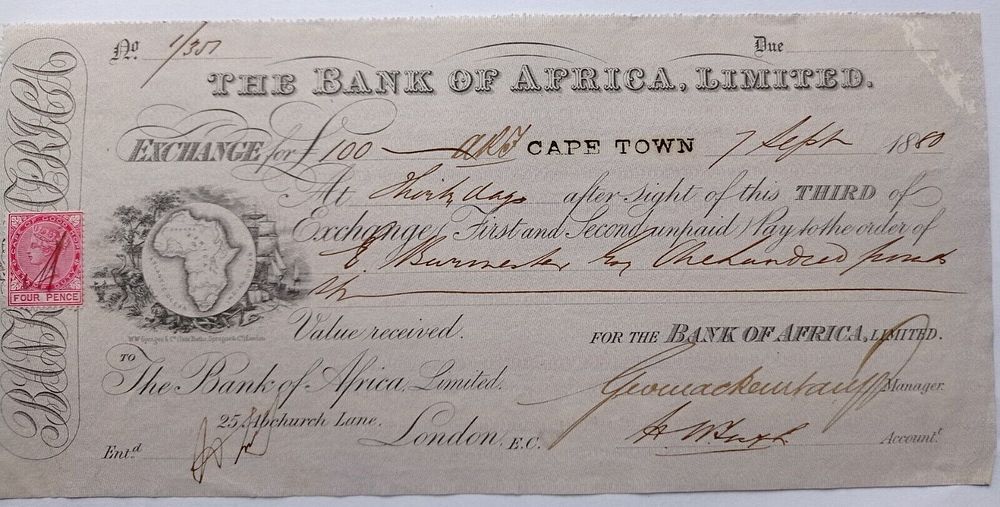 No. 1/301 Due
THE BANK OF AFRICA, LIMITED.
EXCHANGE for £100 CAPE TOWN 7 Sept 1880
At Thirty days after sight of this THIRD of
Exchange (First and Second unpaid) Pay to the order of
E. Burmester Esq One hundred pounds
Value received.
FOR THE BANK OF AFRICA, LIMITED.
TO
The Bank of Africa, Limited,
Manager.
25, Abchurch Lane,
London, E.C.
Entd
Accountt.
BANK AFRICA
CAPE OF GOOD HOPE
FOUR PENCE